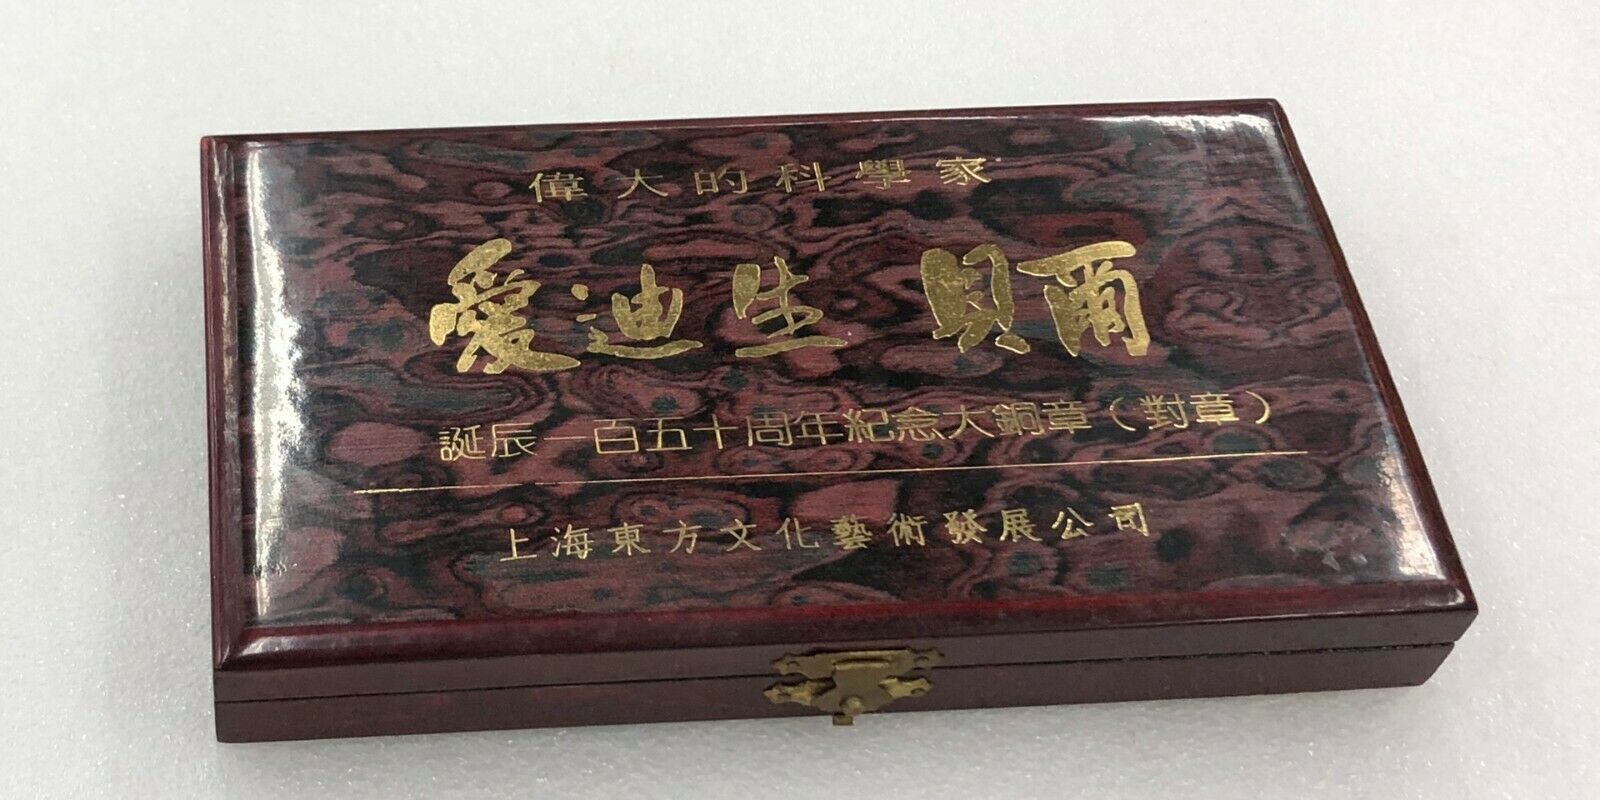 偉大的科學家
愛迪生 貝爾
誕辰一百五十周年紀念大銅章（對章）
上海東方文化藝術發展公司